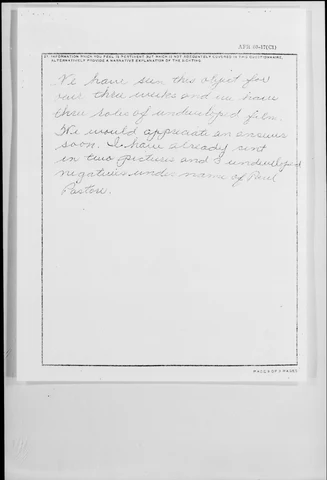 AFR 80-17(C1)
21. INFORMATION WHICH YOU FEEL IS PERTINENT BUT WHICH IS NOT ADEQUATELY COVERED IN THIS QUESTIONNAIRE.
ALTERNATIVELY PROVIDE A NARRATIVE EXPLANATION OF THE SIGHTING.
We have seen this object for
over three weeks and we have
three roles of undeveloped film.
We would appreciate an answer
soon. I have already sent
in two pictures and 8 undeveloped
negatives under name of Paul
Pastore.
PAGE 5 OF 5 PAGES